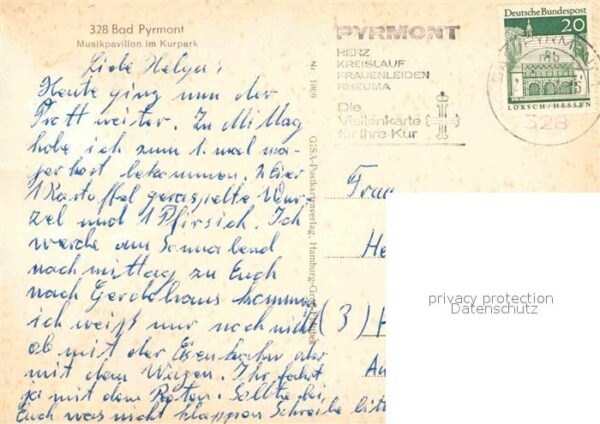 328 Bad Pyrmont
Musikpavillon im Kurpark
Liebe Helga!
Heute ging nun der
Trott weiter. Zu Mittag
habe ich zum 1. mal ma-
ger kost bekommen. 2 Eier
1 Kartoffel geraspelte Wur-
zel und 1 Pfirsich. Ich
werde am Sonnabend
nachmittag zu Euch
nach Geroldhaus kommen
ich weiß nur noch nicht
ob mit der Eisenbahn oder
mit dem Wagen. Ihr fahrt
ja mit dem Roten. Sollte bei
Euch was nicht klappen Schreibe bitte
Nr. 1609
GISA-Postkartenverlag, Hamburg-Groß
PYRMONT
HERZ
KREISLAUF
FRAUENLEIDEN
RHEUMA
Die
Visitenkarte
für Ihre Kur
Deutsche Bundespost
20
LORSCH/HESSEN
PYRMONT
328
Frau
He
(3)
privacy protection
Datenschutz